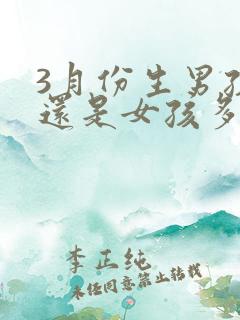 3月份生男孩
還是女孩多
李正純
未经同意禁止转载